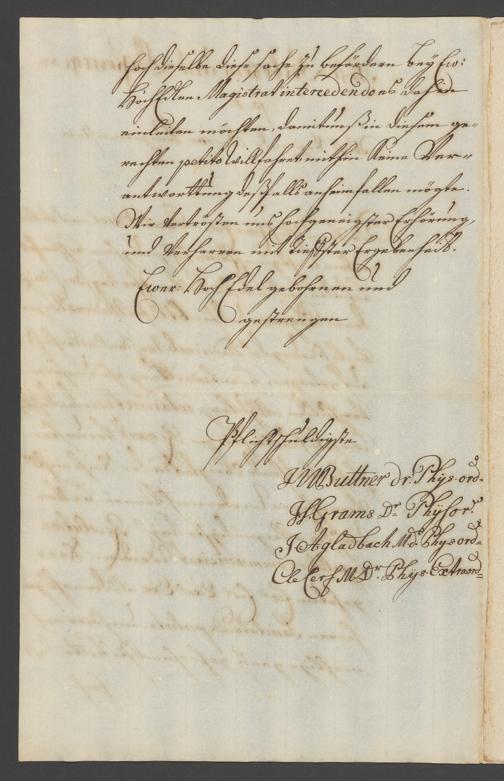 hochdieselbe diese sache zu befördern bey Ew:
HochEdlen Magistrat intercedendo es dahin
einleiten möchten, damit unß in diesem ge-
rechten petito willfahret mithin keine Ver-
antworttung deßfalls anheimfallen mögte.
Wir Vertrösten uns hochgeneigster Erhörung,
und Verharren mit tieffster Ergebenheit.
Ewer: HochEdelgebohrnen und
gestrengen
Pflichtschuldigste
Buttner dr. Phys. ord.
Grams Dr. Phys or:
J A gladbach M Dr. Phys ord.
Le Cerf M. Dr. Phys. Extraord.